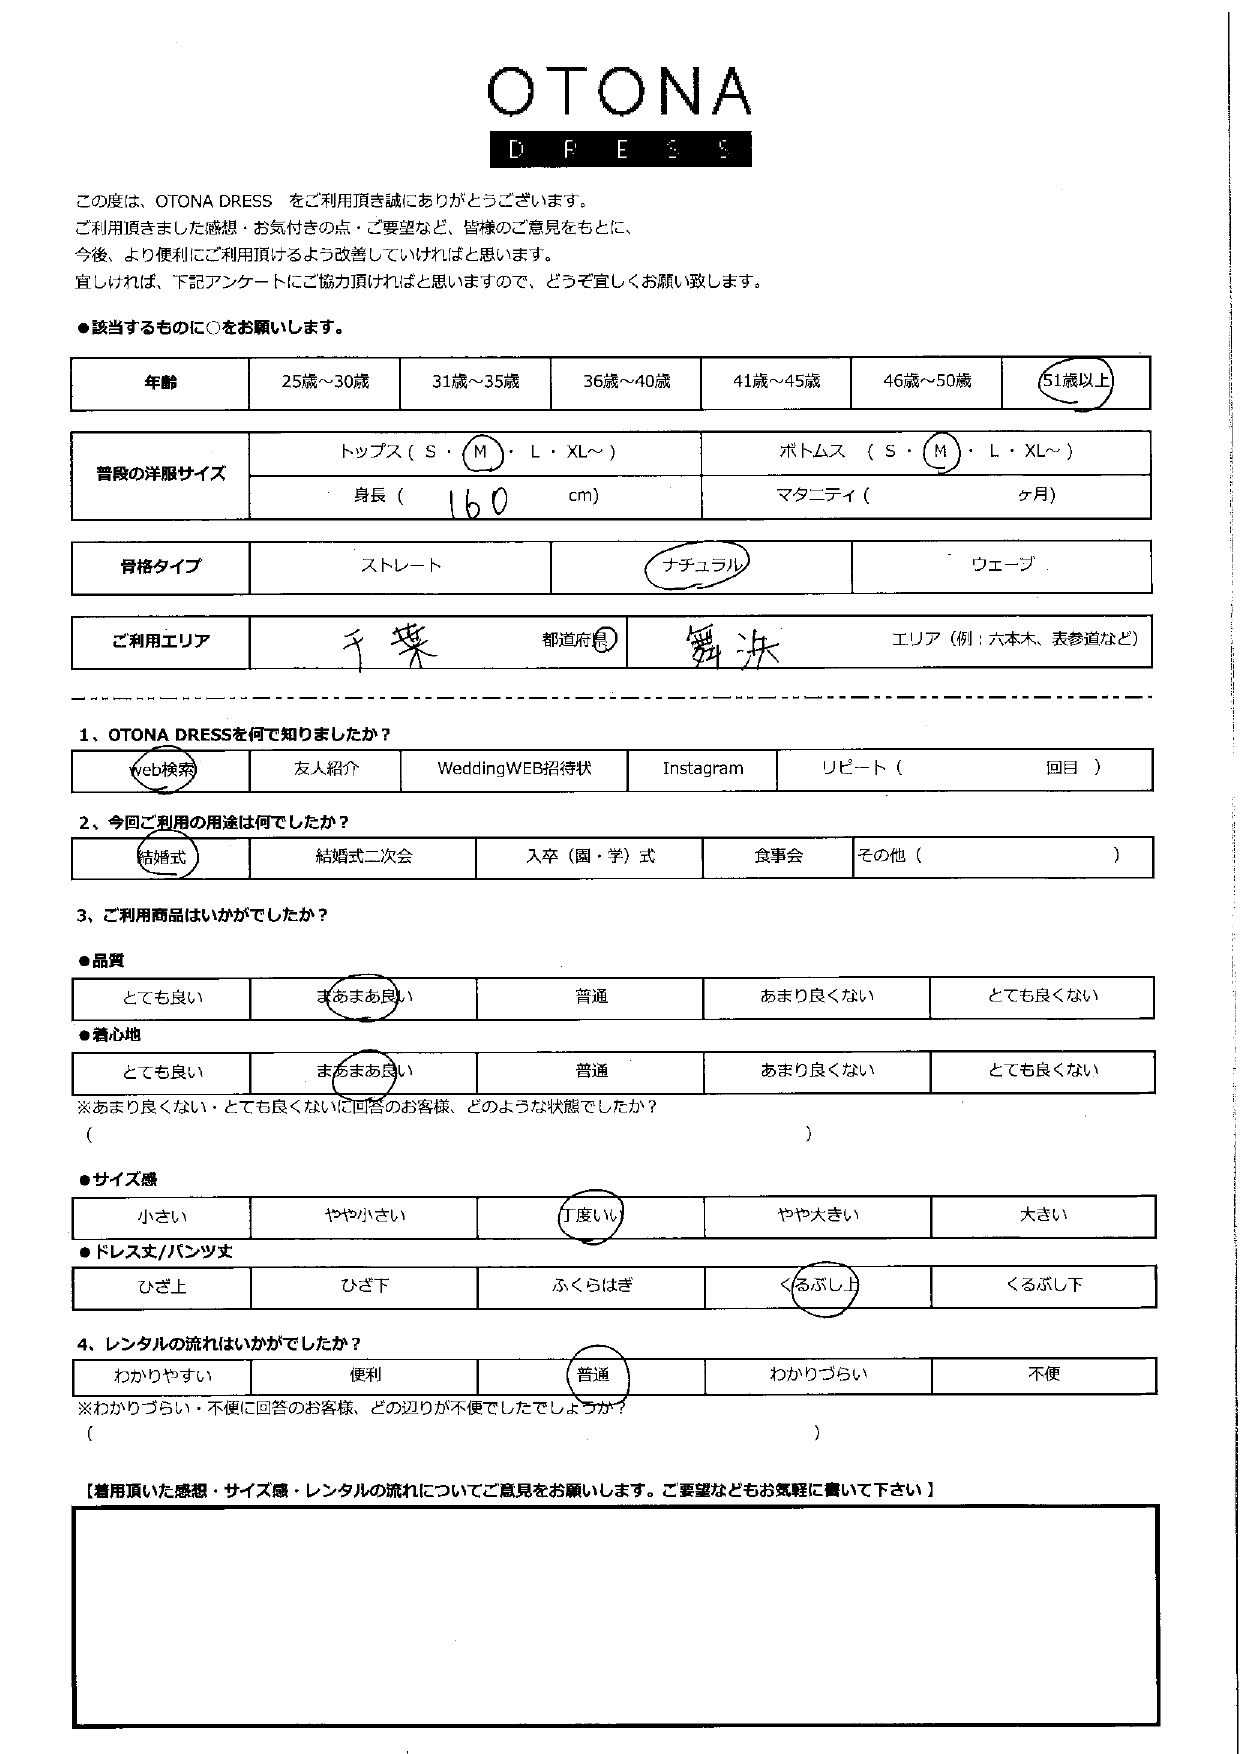 OTONA
DRESS
この度は、OTONA DRESS をご利用頂き誠にありがとうございます。
ご利用頂きました感想・お気付きの点・ご要望など、皆様のご意見をもとに、
今後、より便利にご利用頂けるよう改善していければと思います。
宜しければ、下記アンケートにご協力頂ければと思いますので、どうぞ宜しくお願い致します。
●該当するものに○をお願いします。
年齢 25歳～30歳 31歳～35歳 36歳～40歳 41歳～45歳 46歳～50歳 51歳以上
普段の洋服サイズ トップス ( S ・ M ・ L ・ XL～ ) ボトムス ( S ・ M ・ L ・ XL～ )
身長 ( 160 cm) マタニティ ( ヶ月)
骨格タイプ ストレート ナチュラル ウェーブ
ご利用エリア 千葉 都道府県 舞浜 エリア（例：六本木、表参道など）
1、OTONA DRESSを何で知りましたか？
web検索 友人紹介 WeddingWEB招待状 Instagram リピート ( 回目 )
2、今回ご利用の用途は何でしたか？
結婚式 結婚式二次会 入卒（園・学）式 食事会 その他 ( )
3、ご利用商品はいかがでしたか？
●品質
とても良い まあまあ良い 普通 あまり良くない とても良くない
●着心地
とても良い まあまあ良い 普通 あまり良くない とても良くない
※あまり良くない・とても良くないに回答のお客様、どのような状態でしたか？
( )
●サイズ感
小さい やや小さい 丁度いい やや大きい 大きい
●ドレス丈/パンツ丈
ひざ上 ひざ下 ふくらはぎ くるぶし上 くるぶし下
4、レンタルの流れはいかがでしたか？
わかりやすい 便利 普通 わかりづらい 不便
※わかりづらい・不便に回答のお客様、どの辺りが不便でしたでしょうか？
( )
【着用頂いた感想・サイズ感・レンタルの流れについてご意見をお願いします。ご要望などもお気軽に書いて下さい】